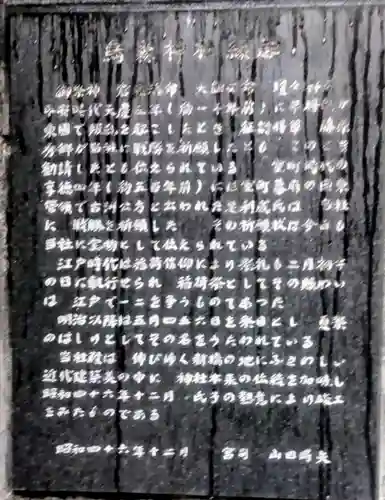 烏森神社縁起
御祭神 倉稲魂命 天鈿女命 瓊々杵命
平安時代天慶三年（約一千年前）に平将門が
東国で叛乱を起こしたとき 征討将軍 藤原
秀郷が当社に戦勝を祈願したとも この ときの
勧請したとも伝えられている 室町時代の
享徳四年（約五百年前）には室町幕府の関東
管領で古河公方と云われた足利成氏は 当社
に 戦勝を祈願した その祈願状は今日も
当社に宝物として伝えられている
江戸時代は稲荷信仰により祭礼も二月初午
の日に執行せられ 稲荷祭としてその賑わい
は 江戸で一二を争うものであった
明治以降は五月四五六日を祭日とし 夏祭
のはしりとしてその名をうたわれている
当社殿は 伸びゆく新橋の地にふさわしい
近代建築美の中に 神社本来の伝統を加味し
昭和四十六年十二月 氏子の熱意により竣工
をみたものである
昭和四十六年十二月 宮司 山田